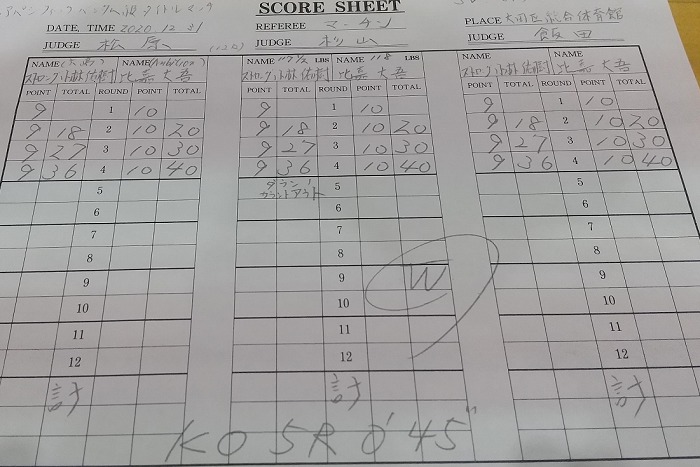 SCORE SHEET
DATE, TIME 2020 12 31
REFEREE マーチン
PLACE 大田区総合体育館
JUDGE 松原
JUDGE 杉山
JUDGE 飯田
NAME NAME
NAME 117 1/2 LBS NAME 118 LBS
NAME NAME
ストロング小林佑樹 比嘉大吾
ストロング小林佑樹 比嘉大吾
ストロング小林佑樹 比嘉大吾
POINT TOTAL ROUND POINT TOTAL
POINT TOTAL ROUND POINT TOTAL
POINT TOTAL ROUND POINT TOTAL
9 1 10
9 1 10
9 1 10
9 18 2 10 20
9 18 2 10 20
9 18 2 10 20
9 27 3 10 30
9 27 3 10 30
9 27 3 10 30
9 36 4 10 40
9 36 4 10 40
9 36 4 10 40
5
ダウン1 5
カウントアウト
5
6 6 6
7 7 7
8 8 8
9 9 9
W
10 10 10
11 11 11
12 12 12
計 計 計
KO 5R 0'45"